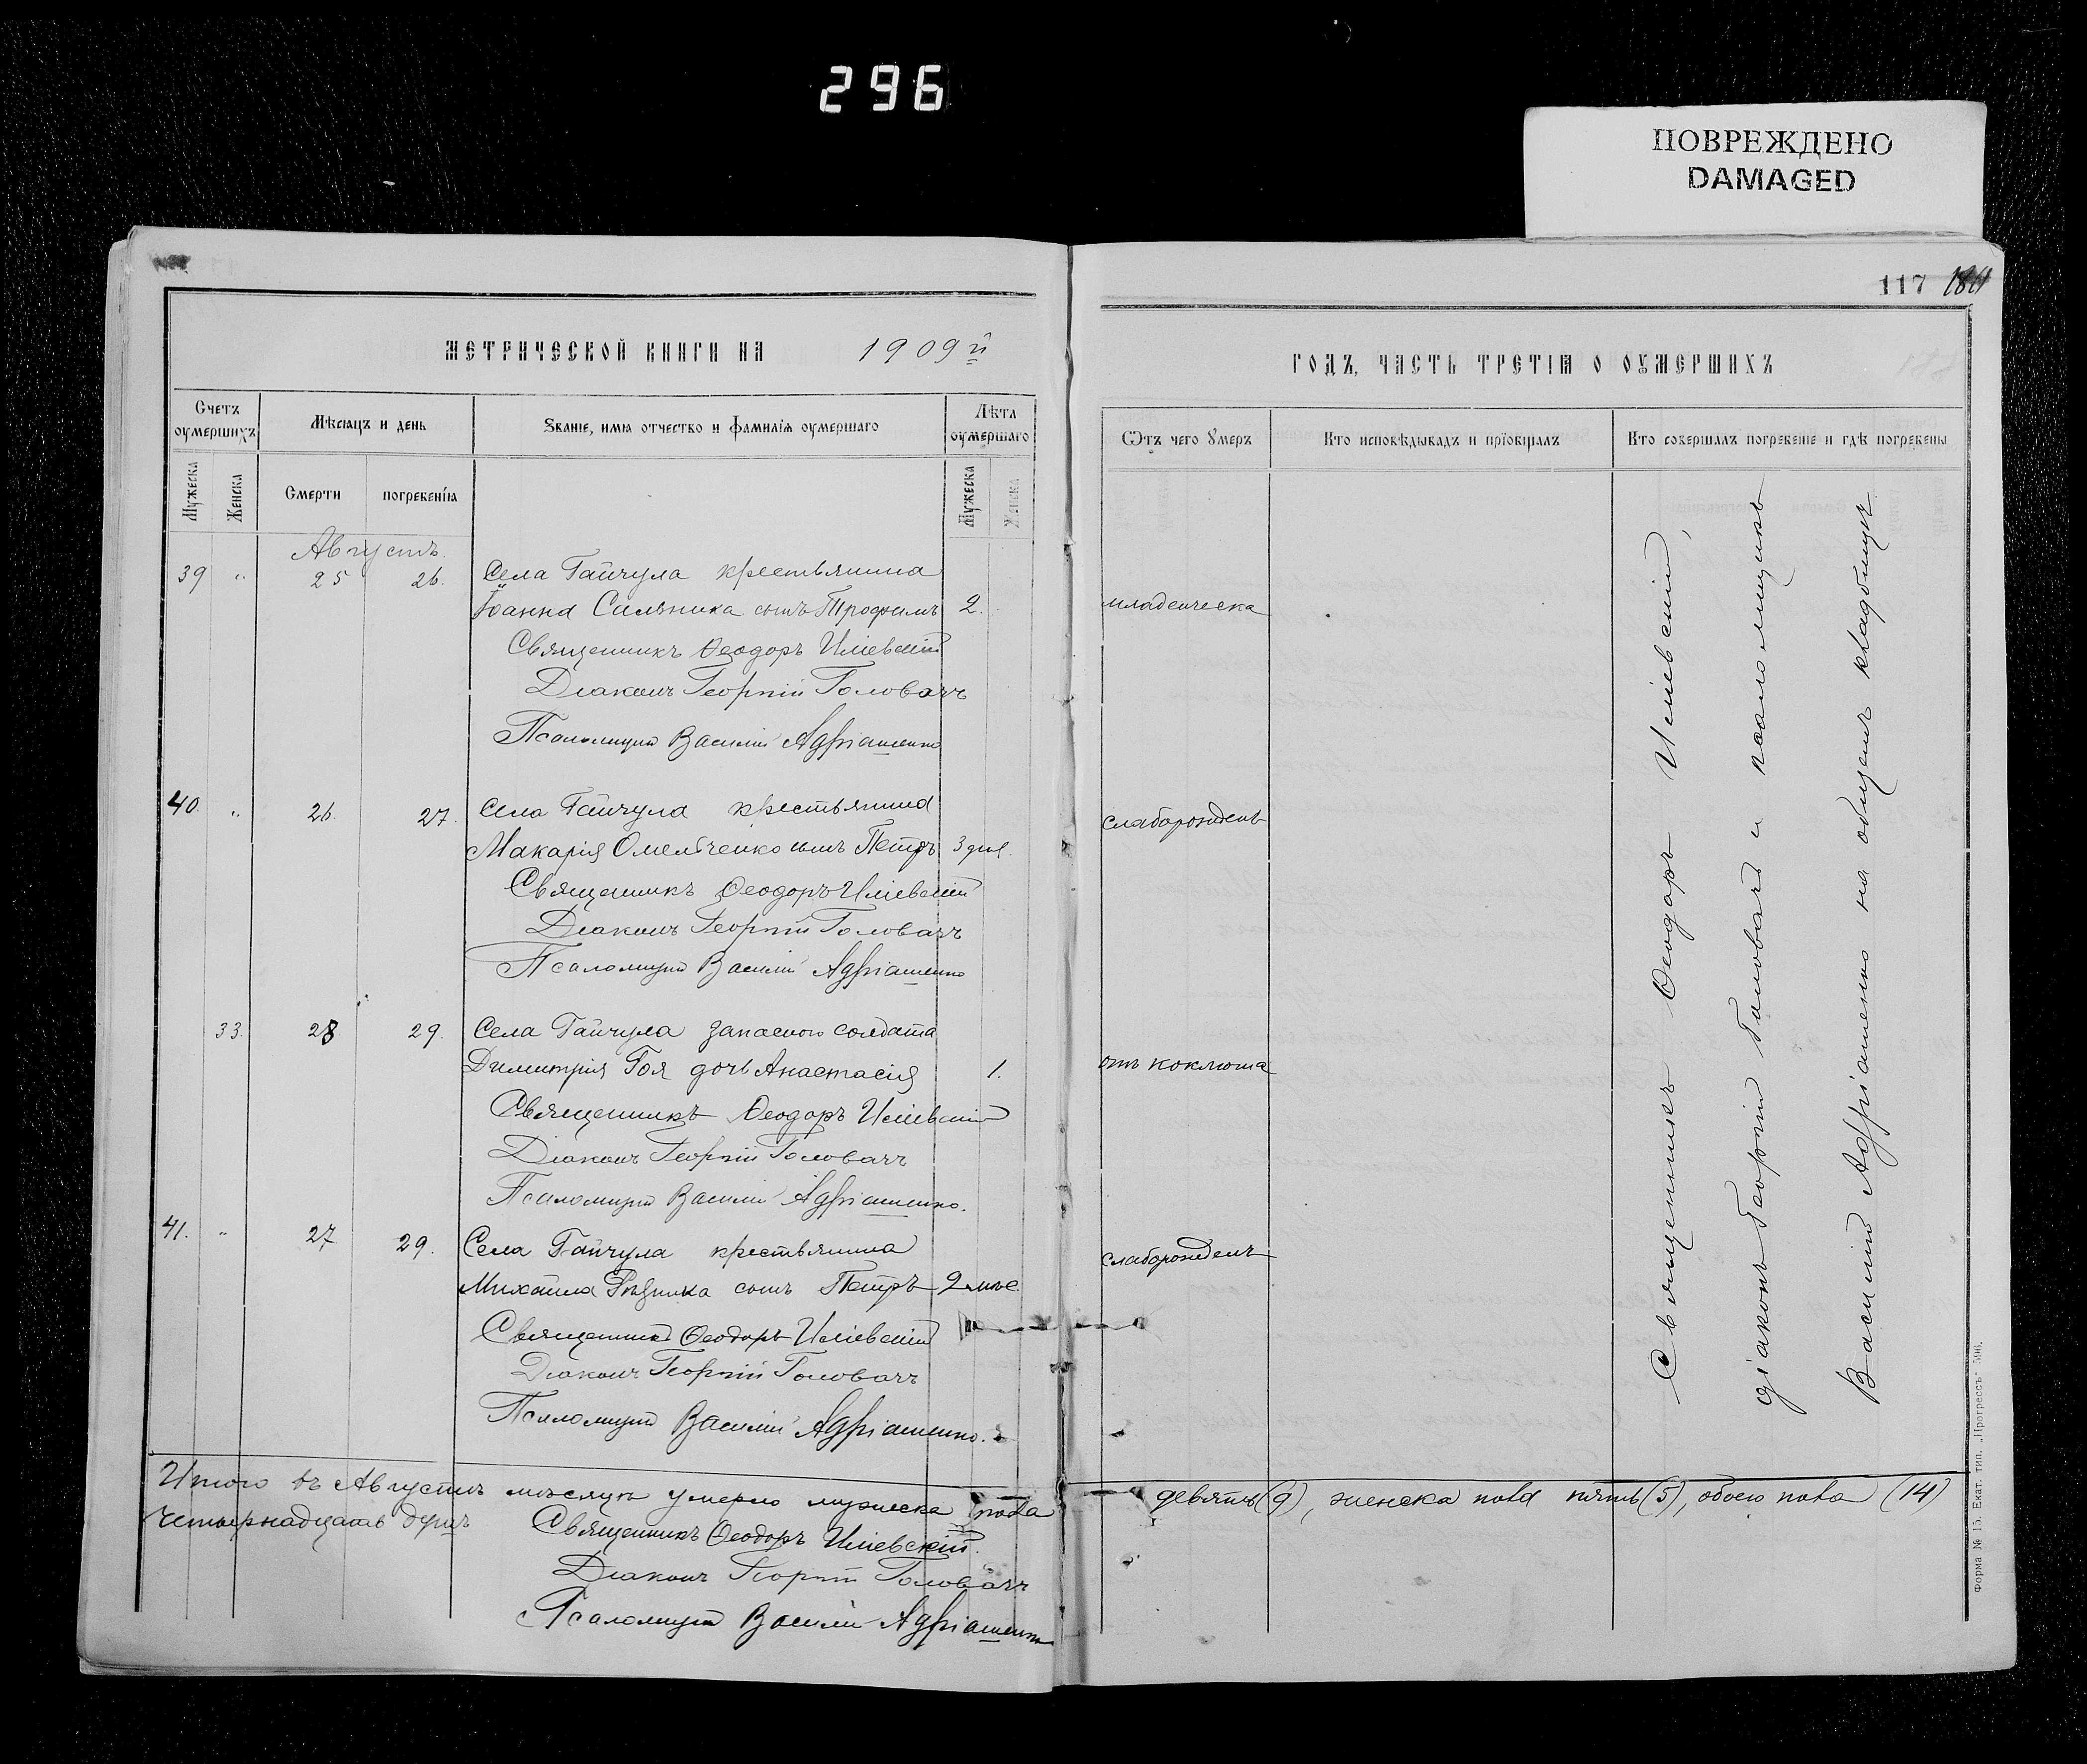 296
ПОВРЕЖДЕНО
DAMAGED
117
МЕТРИЧЕСКОЙ КНИГИ НА 1909й
Счетъ оумершихъ
Мѣсяцъ и день
Званіе, имя отчество и фамилія оумершаго
Лѣта оумершаго
Мужеска
Женска
Смерти
погребенія
Мужеска
Женска
Августъ.
39 " 25 26. Села Гайчула крестьянина
Іоанна Сильника сынъ Трофимъ 2.
Священникъ Ѳеодоръ Иліевскій
Діаконъ Георгій Головачъ
Псаломщикъ Василій Адріашенко
40. " 26. 27. Села Гайчула крестьянина
Макарія Омельченко сынъ Петръ 3 дня.
Священникъ Ѳеодоръ Иліевскій
Діаконъ Георгій Головачъ
Псаломщикъ Василій Адріашенко
33. 28 29. Села Гайчула запаснаго солдата
Димитрія Гоя дочь Анастасія 1.
Священникъ Ѳеодоръ Иліевскій
Діаконъ Георгій Головачъ
Псаломщикъ Василій Адріашенко.
41. " 27 29. Села Гайчула крестьянина
Михаила сынъ Петръ 2 мѣс.
Священникъ Ѳеодоръ Иліевскій
Діаконъ Георгій Головачъ
Псаломщикъ Василій Адріашенко.
Итого въ Августѣ мѣсяцѣ умерло мужеска пола
четырнадцать душъ
Священникъ Ѳеодоръ Иліевскій.
Діаконъ Георгій Головачъ
Псаломщикъ Василій Адріашенко
ГОДЪ, ЧАСТЬ ТРЕТІЯ О ОУМЕРШИХЪ
Ѿтъ чего Умеръ
Кто исповѣдывалъ и пріобщалъ
Кто совершалъ погребеніе и гдѣ погребены
младенческа
слаборожденъ
отъ коклюша
слаборожденъ
Священникъ Ѳеодоръ Иліевскій,
діаконъ Георгій Головачъ и псаломщикъ
Василій Адріашенко на общемъ кладбищѣ
девять (9), женска пола пять (5), обоего пола (14)
Форма № 15. Екат. тип. „Прогрессъ“